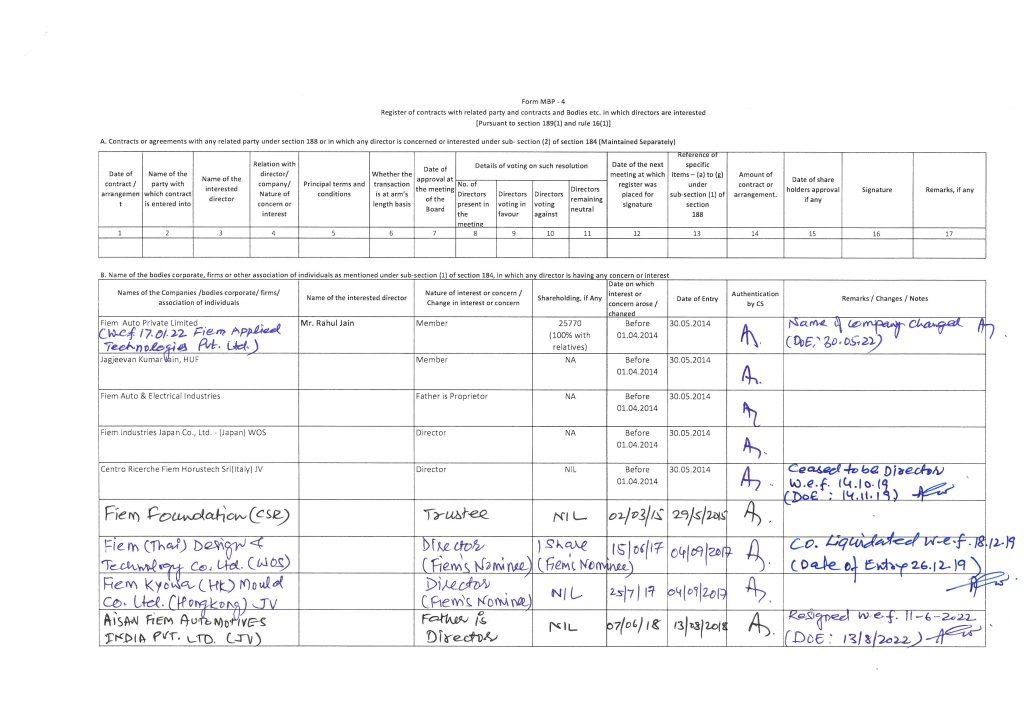 Form MBP - 4
Register of contracts with related party and contracts and Bodies etc. in which directors are interested
[Pursuant to section 189(1) and rule 16(1)]
A. Contracts or agreements with any related party under section 188 or in which any director is concerned or interested under sub- section (2) of section 184 (Maintained Separately)
Date of contract / arrangemen t
Name of the party with which contract is entered into
Name of the interested director
Relation with director/ company/ Nature of concern or interest
Principal terms and conditions
Whether the transaction is at arm's length basis
Date of approval at the meeting of the Board
Details of voting on such resolution
No. of Directors present in the meeting
Directors voting in favour
Directors voting against
Directors remaining neutral
Date of the next meeting at which register was placed for signature
Reference of specific items – (a) to (g) under sub-section (1) of section 188
Amount of contract or arrangement.
Date of share holders approval if any
Signature
Remarks, if any
1 2 3 4 5 6 7 8 9 10 11 12 13 14 15 16 17
B. Name of the bodies corporate, firms or other association of individuals as mentioned under sub-section (1) of section 184, in which any director is having any concern or interest
Names of the Companies /bodies corporate/ firms/ association of individuals
Name of the interested director
Nature of interest or concern / Change in interest or concern
Shareholding, if Any
Date on which interest or concern arose / changed
Date of Entry
Authentication by CS
Remarks / Changes / Notes
Fiem Auto Private Limited
(w.e.f 17.01.22 Fiem Applied
Technologies Pvt. Ltd.)
Mr. Rahul Jain
Member
25770
(100% with
relatives)
Before
01.04.2014
30.05.2014
Name of company changed
(DoE: 30.05.22)
Jagjeevan Kumar Jain, HUF
Member
NA
Before
01.04.2014
30.05.2014
Fiem Auto & Electrical Industries
Father is Proprietor
NA
Before
01.04.2014
30.05.2014
Fiem Industries Japan Co., Ltd. - (Japan) WOS
Director
NA
Before
01.04.2014
30.05.2014
Centro Ricerche Fiem Horustech Srl(Italy) JV
Director
NIL
Before
01.04.2014
30.05.2014
Ceased to be Director
w.e.f. 14.10.19
(DoE : 14.11.19)
Fiem Foundation (CSR)
Trustee
NIL
02/03/15
29/5/2015
Fiem (Thai) Design &
Technology Co. Ltd. (WOS)
Director
(Fiem's Nominee)
1 Share
(Fiem's Nominee)
15/06/17
04/09/2017
Co. Liquidated w.e.f. 18.12.19
(Date of Entry 26.12.19)
Fiem Kyowa (HK) Mould
Co. Ltd. (Hongkong) JV
Director
(Fiem's Nominee)
NIL
25/7/17
04/09/2017
AISAN FIEM AUTOMOTIVES
INDIA PVT. LTD. (JV)
Father is
Director
NIL
07/06/18
13/08/2018
Resigned w.e.f. 11-6-2022
(DOE: 13/8/2022)